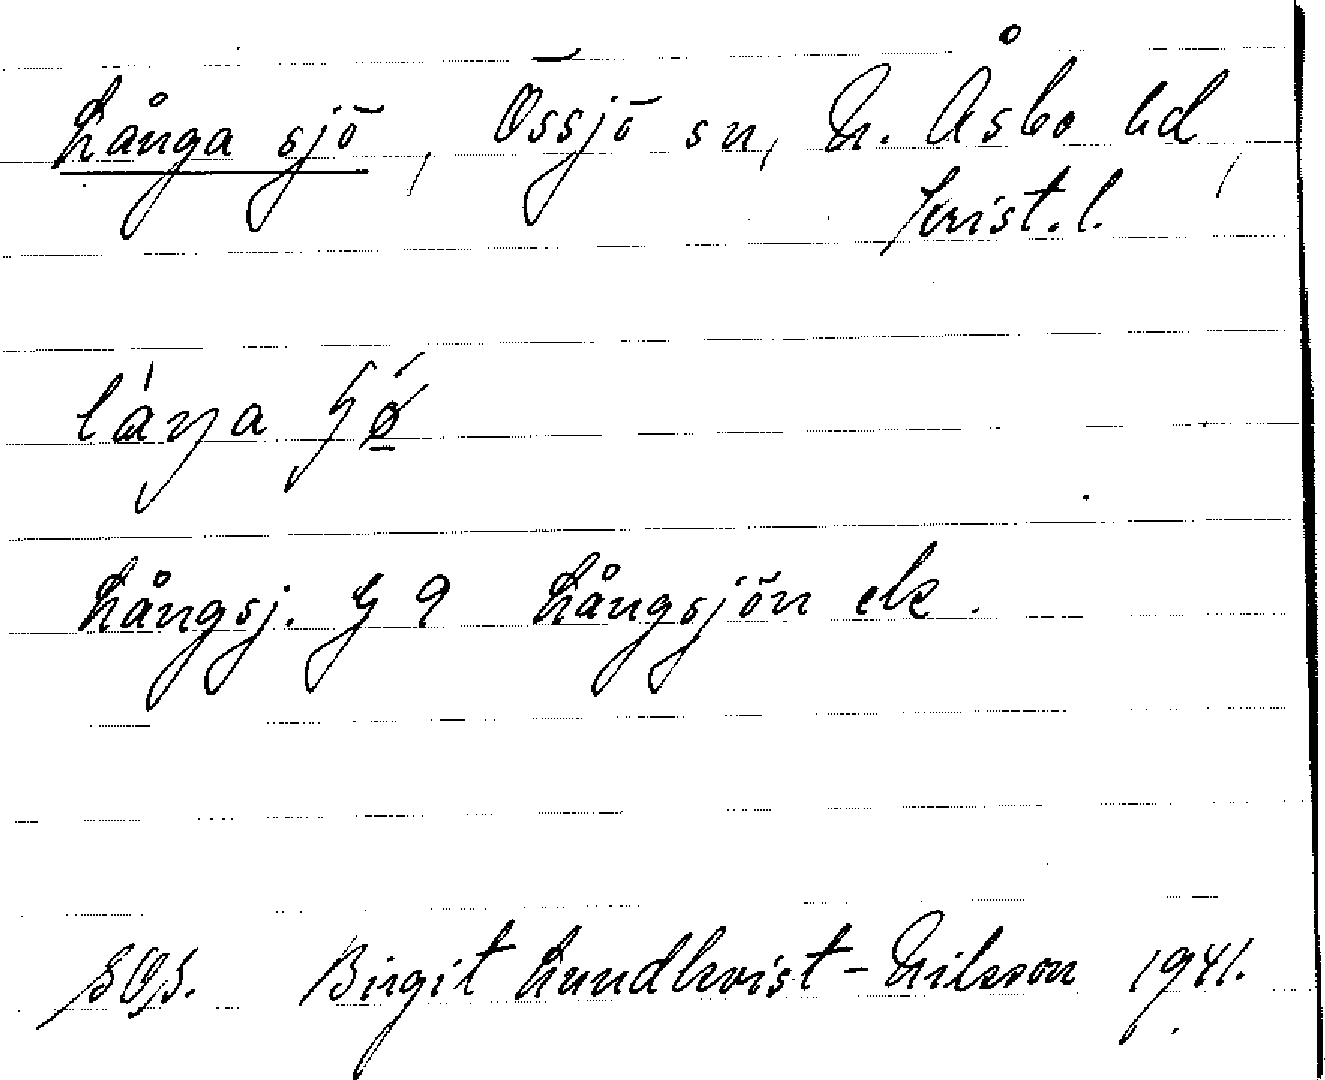 Långa sjö, Össjö sn, N. Åsbo hd,
Krist. l.
Långsj. G 9 Långsjön ek.
SOS. Birgit Lundkvist-Nilsson 1941.